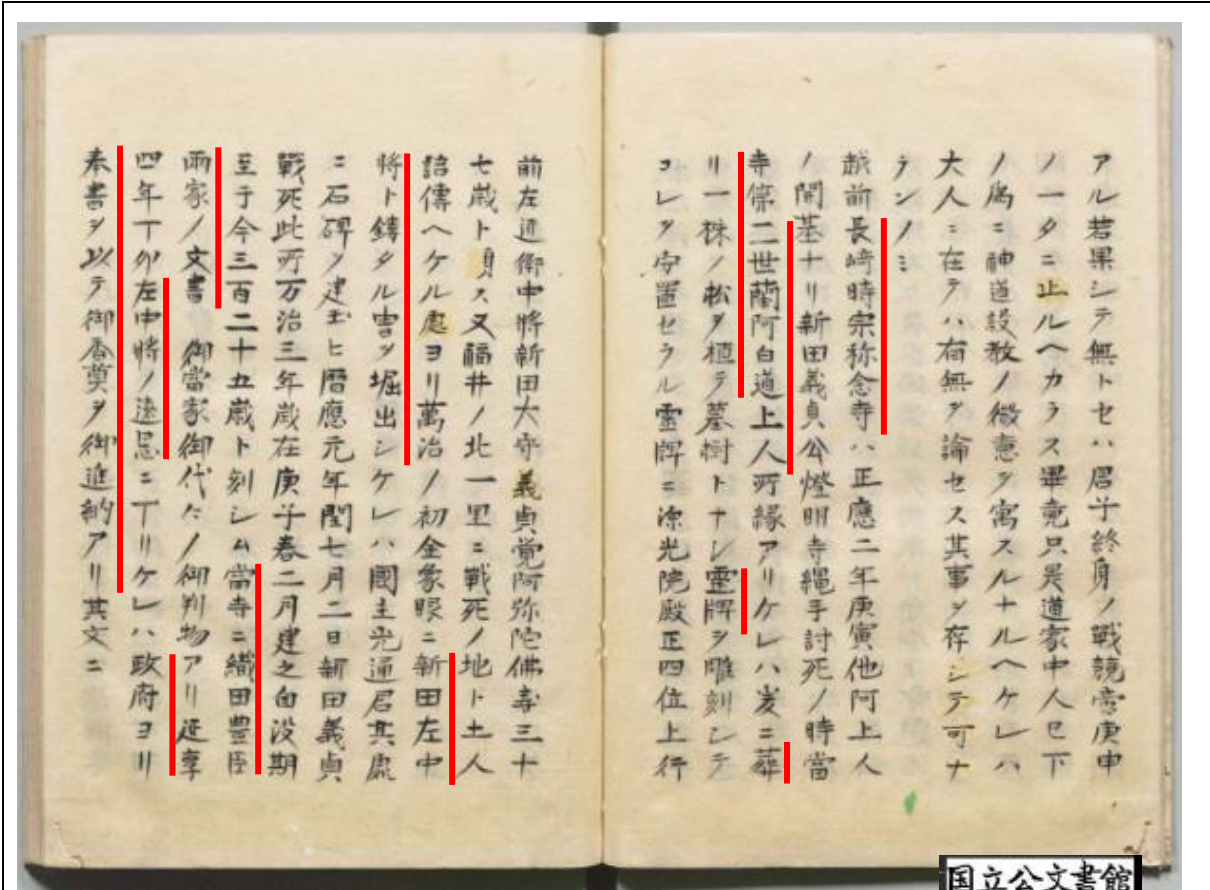 アル若果シテ無トセハ君子終身ノ戰競豈庚申
ノ一夕ニ止ルヘカラス畢竟只是道家中人已下
ノ爲ニ神道設教ノ微意ヲ寓スルナルヘケレハ
大人ニ在テハ有無ヲ論セス其事ヲ存シテ可ナ
ランノミ
越前長﨑時宗称念寺ハ正應二年庚寅他阿上人
ノ開基ナリ新田義貞公燈明寺縄手討死ノ時當
寺第二世蘭阿白道上人所縁アリケレハ爰ニ葬
リ一株ノ松ヲ植テ墓樹トナシ霊牌ヲ雕刻シテ
コレヲ安置セラル霊牌ニ源光院殿正四位上行
前左近衛中將新田大守義貞覚阿弥陀佛壽三十
七歳ト有ス又福井ノ北一里ニ戰死ノ地ト土人
語傳ヘケル處ヨリ萬治ノ初金象眼ニ新田左中
將ト鑄タル冑ヲ堀出シケレハ國主光通君其處
ニ石碑ヲ建玉ヒ暦應元年閏七月二日新田義貞
戰死此所万治三年歳在庚子春二月建之自没期
至于今三百二十五歳ト刻シム當寺ニ織田豊臣
兩家ノ文書御當家御代々ノ御判物アリ延享
四年丁卯左中將ノ遠忌ニ丁リケレハ政府ヨリ
奉書ヲ以テ御香奠ヲ御進納アリ其文ニ
国立公文書館